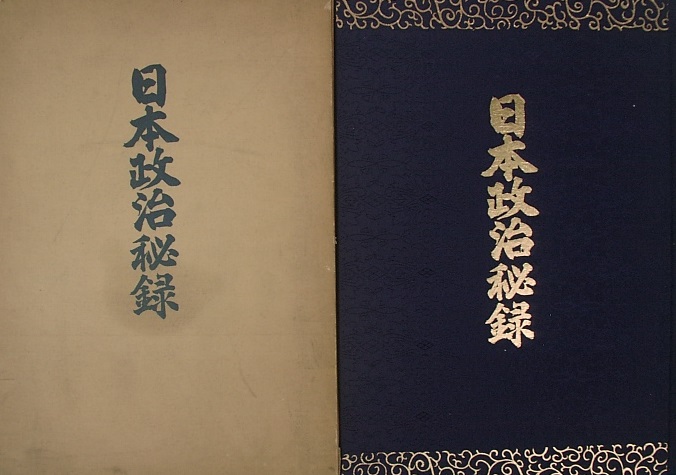 日本政治秘録
日本政治秘録